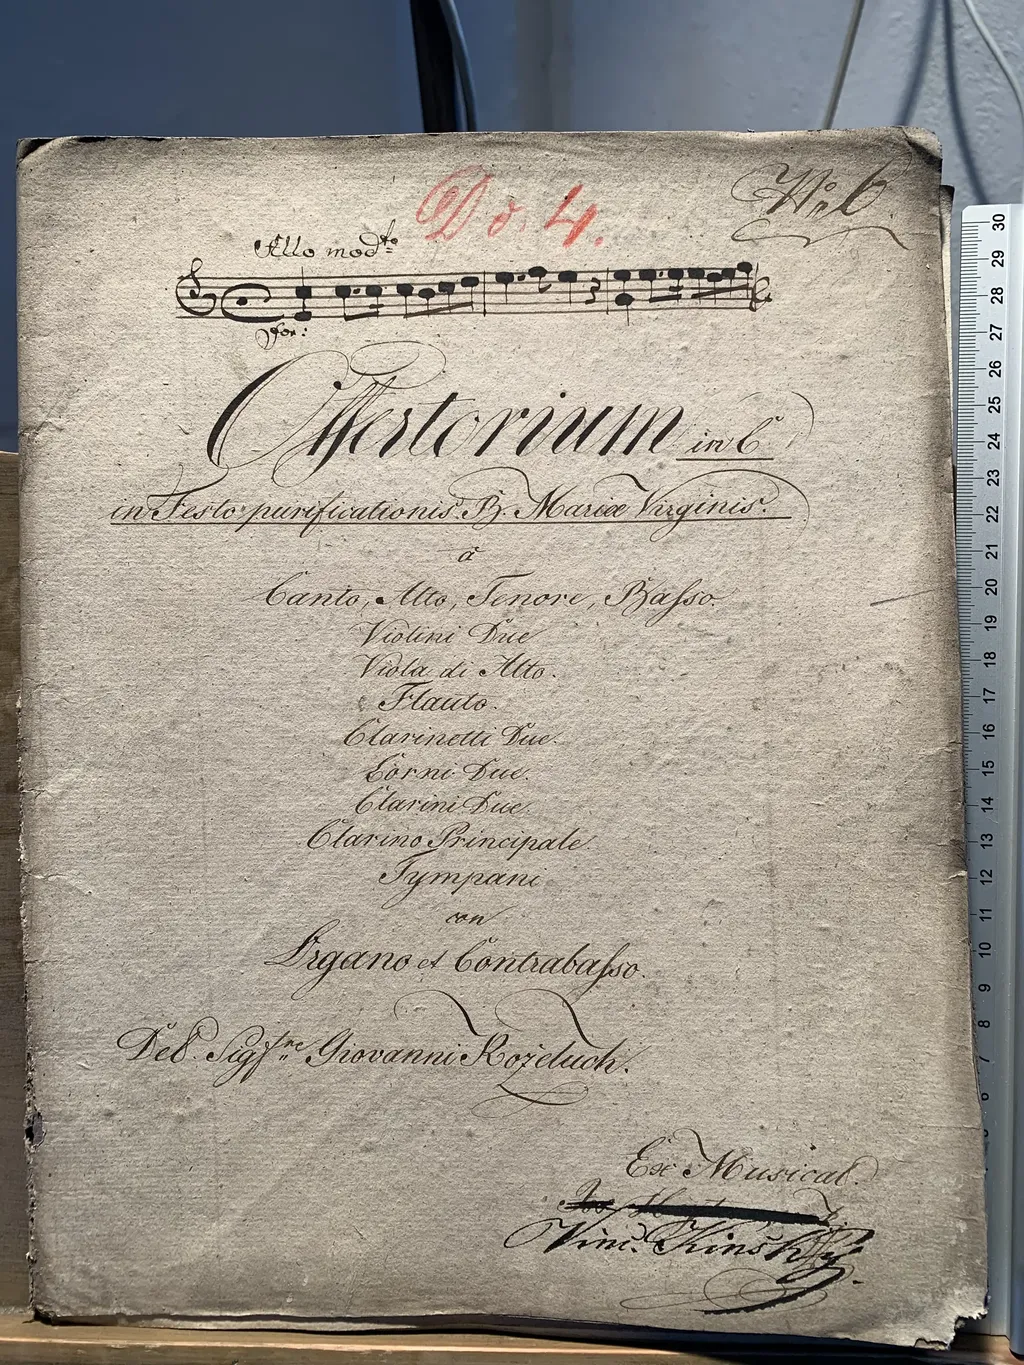 Do. 4.
No 6
Allo modto
for:
Offertorium in C
in Festo purificationis B. Mariæ Virginis.
à
Canto, Alto, Tenore, Baſso.
Violini Due
Viola di Alto.
Flauto.
Clarinetti Due.
Corni Due.
Clarini Due.
Clarino Principale
Tympani
con
Organo et Contrabaſso.
Del Sigre Giovanni Kożeluch.
Ex Musical.
Vinc. Kinsky.
30
29
28
27
26
25
24
23
22
21
20
19
18
17
16
15
14
13
12
11
10
9
8
7
6
5